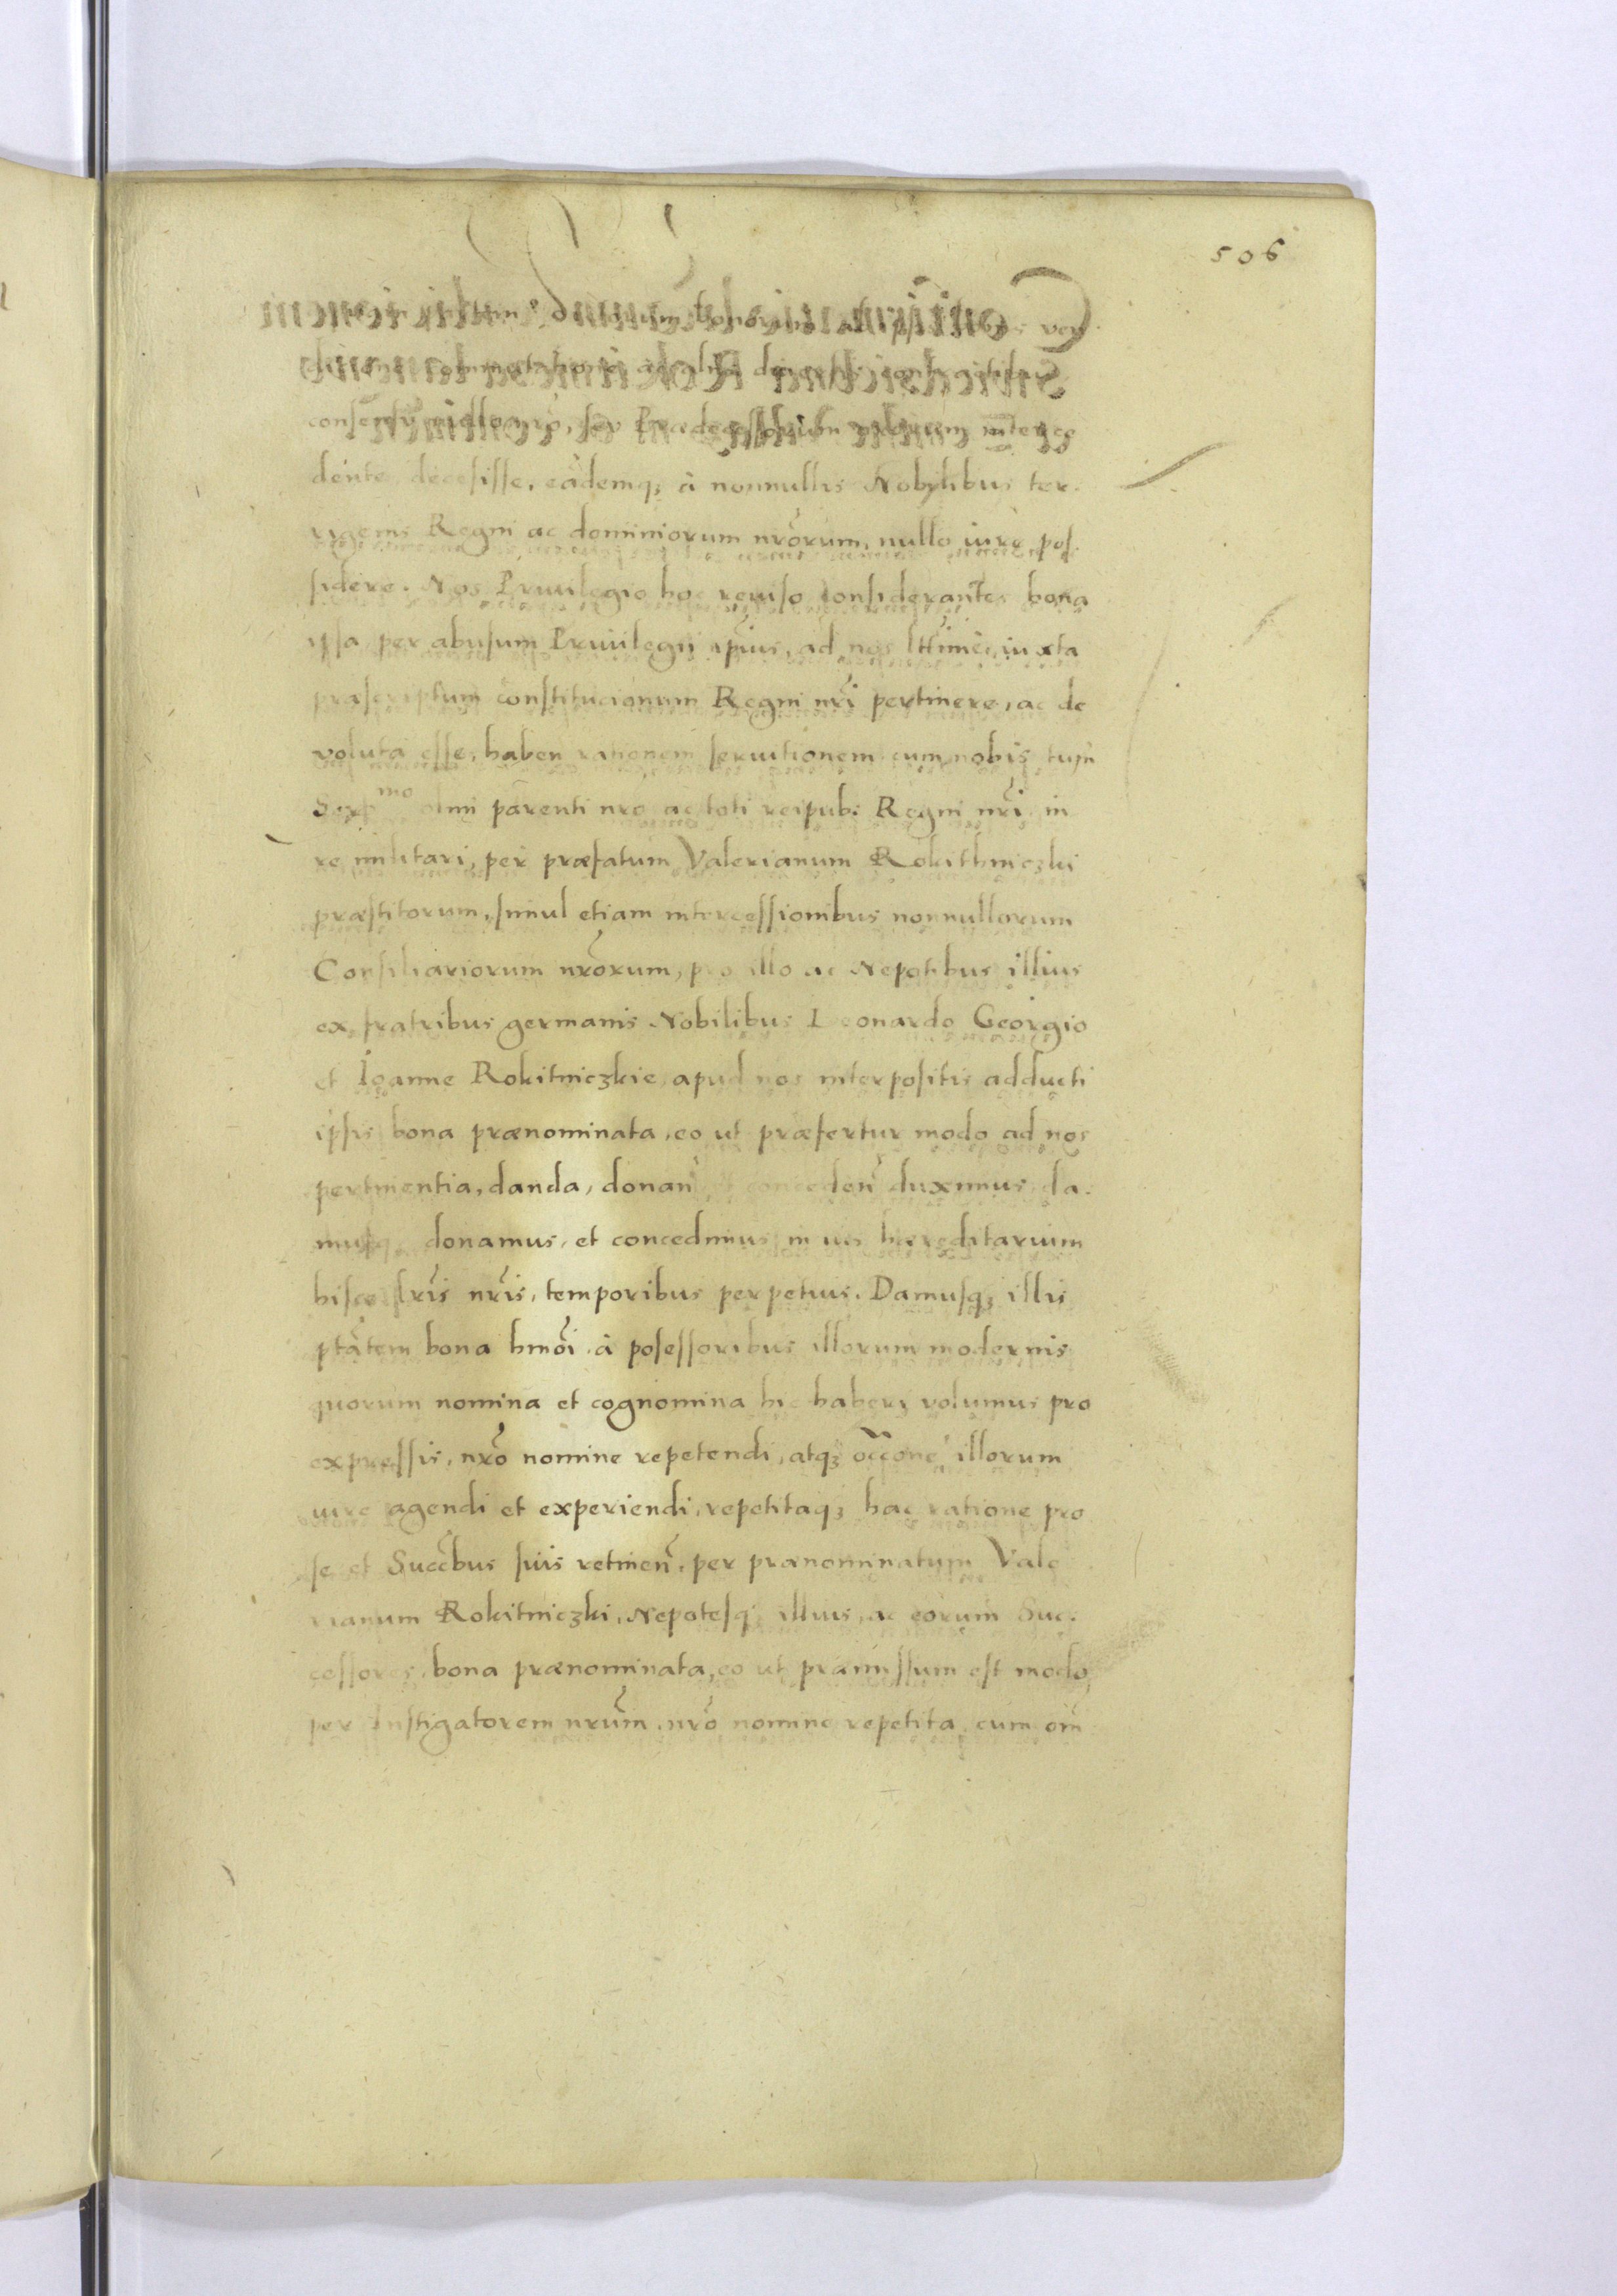 506
consensu nullo nrō, seu Praedecessorum nrorum interce
dente decesisse, eademq; à nonnullis Nobilibus ter.
rigenis Regni ac dominiorum nrōrum, nullo iure pos.
sidere. Nos Priuilegio hoc reuiso considerantes bona
ipsa per abusum Priuilegii ipīus, ad nos lttīmè, iuxta
præscriptum constitucionum Regni nrī pertinere, ac de
voluta esse, haben rationem seruitionem cum nobis tum
Serᵐᵒ olim parenti nro ac toti reipub: Regni nrī in
re militari, per præfatum Valerianum Rokithniczki
præstitorum, simul etiam intercessionibus nonnullorum
Consiliariorum nrōrum, pro illo ac Nepotibus illius
ex fratribus germanis Nobilibus Leonardo Georgio
et Ioanne Rokitniczkie apud nos interpositis adducti
ipsis bona prænominata, eo ut præfertur modo ad nos
pertinentia, danda, donan̄ et conceden̄ duximus da.
musq; donamus, et concedimus in ius hæreditarium
hisce lrīs nrīs, temporibus perpetuis. Damusq; illis
ptātem bona hmōi à posessoribus illorum modernis
quorum nomina et cognomina hic haberi volumus pro
expressis, nrō nomine repetendi, atq; occōne illorum
iure agendi et experiendi, repetitaq; hac ratione pro
se et Succ̄bus suis retinen̄, per prænominatum Vale
rianum Rokitniczki, Nepotesq; illius, ac eorum Suc.
cessores, bona prænominata, eo ut præmissum est modo
per Instigatorem nrūm, nrō nomine repetita cum om̄